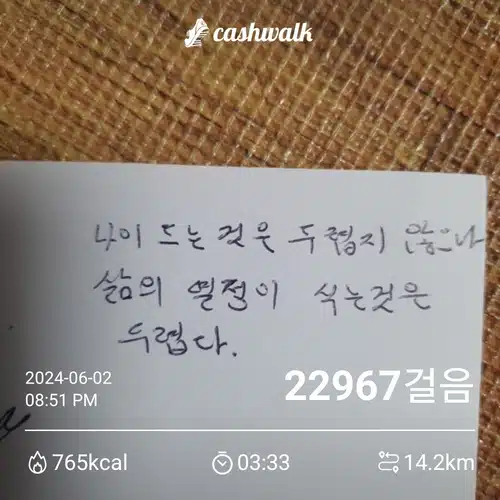 cashwalk
나이 드는 것은 두렵지 않으나
삶의 열정이 식는것은
두렵다.
2024-06-02
08:51 PM
22967걸음
765kcal
03:33
14.2km